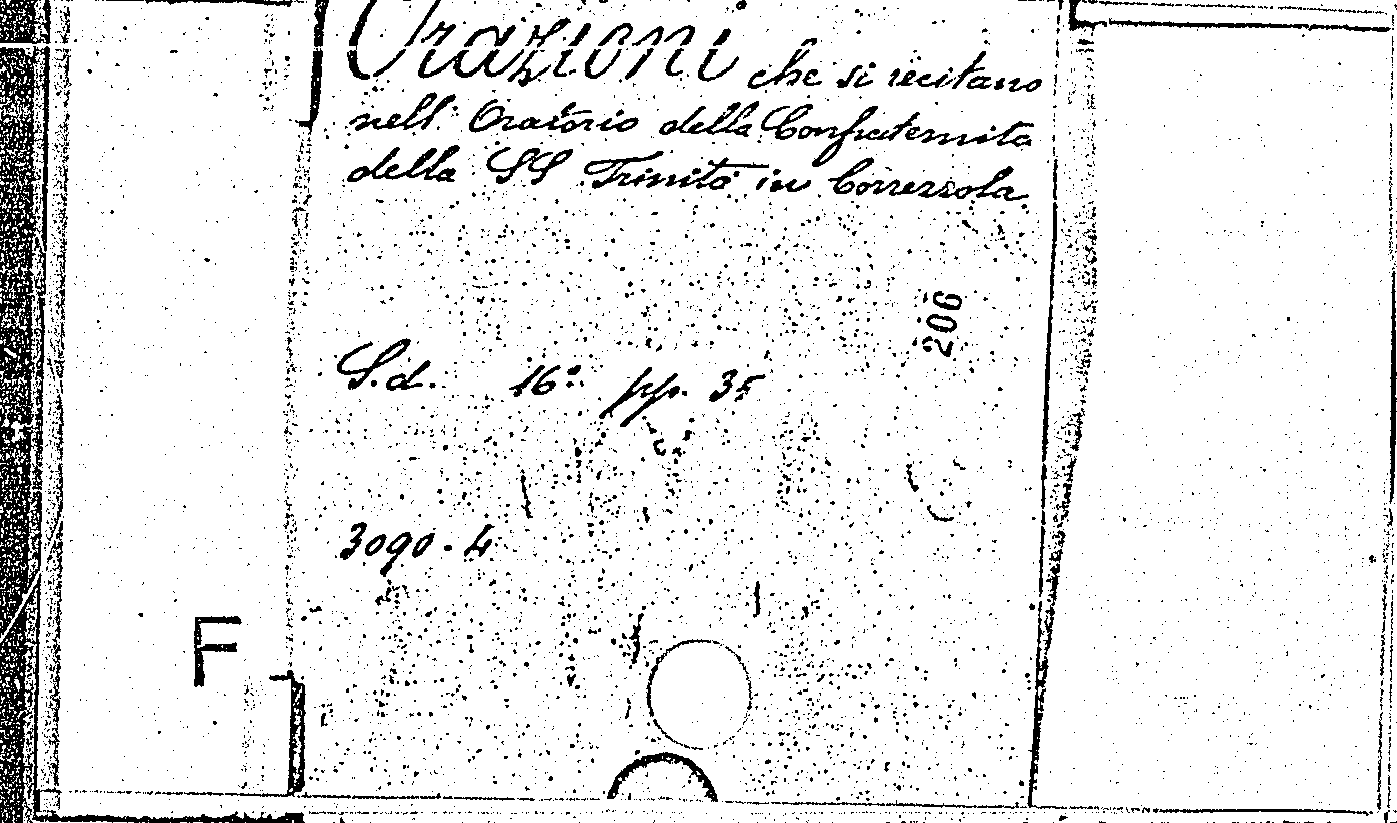 Orazioni che si recitano
nell' Oratorio della Confraternita
della SS Trinità in Correzzola
206
S.d. 16° pp. 35
3090.4
F